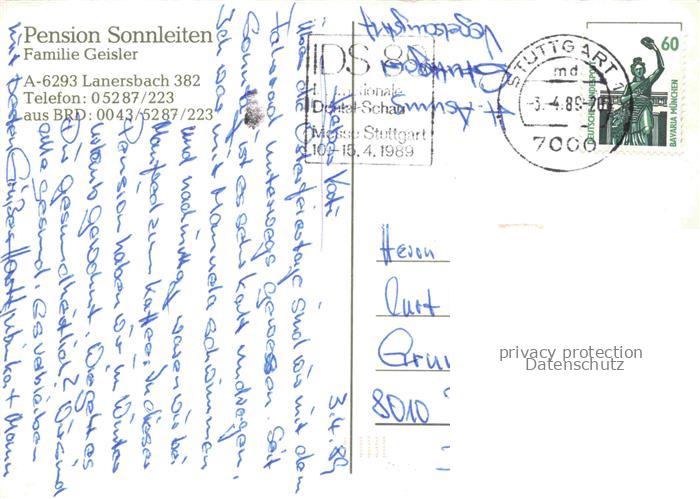 Pension Sonnleiten
Familie Geisler
A-6293 Lanersbach 382
Telefon: 05287/223
aus BRD: 0043/5287/223
IDS 89
Internationale
Dental-Schau
Messe Stuttgart
10.-15.4.1989
STUTTGART
md
-3.-4.89-20
7000
60
DEUTSCHE BUNDESPOST
BAVARIA MÜNCHEN
3.4.89
über die Osterfeiertage sind wir mit dem
Fahrrad unterwegs gewesen. Seit
Sonntag ist es sehr kalt und regen.
Ich war mit Manuela schwimmen
und nachmittag waren wir bei
Manfred zum Kaffee. In dieser
Pension haben wir im Winter
Urlaub gemacht. Wie geht es
Dir gesundheitlich? Wir sind
alle gesund. Es verbleiben
mit besten Grüßen
Herrn
Curt
8010
privacy protection
Datenschutz